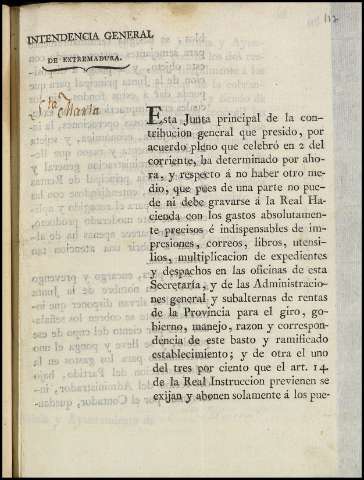 117
INTENDENCIA GENERAL
DE EXTREMADURA.
Sta Marta
Esta Junta principal de la con-
tribucion general que presido, por
acuerdo pleno que celebró en 2 del
corriente, ha determinado por aho-
ra, y respecto á no haber otro me-
dio, que pues de una parte no pue-
de ni debe gravarse á la Real Ha-
cienda con los gastos absolutamen-
te precisos é indispensables de im-
presiones, correos, libros, utensi-
lios, multiplicacion de expedientes
y despachos en las oficinas de esta
Secretaría, y de las Administracio-
nes general y subalternas de rentas
de la Provincia para el giro, go-
bierno, manejo, razon y correspon-
dencia de este basto y ramificado
establecimiento; y de otra el uno
del tres por ciento que el art. 14
de la Real Instruccion previenen se
exijan y abonen solamente á los pue-